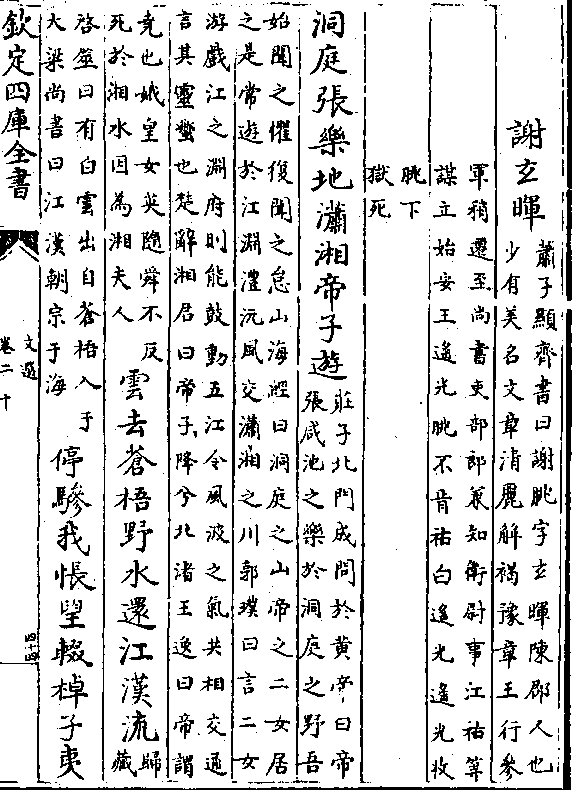 謝玄暉
蕭子顯齊書曰謝朓字玄暉陳郡人也
少有美名文章清麗解褐豫章王行參
軍稍遷至尚書吏部郎兼知衛尉事江祐等
謀立始安王遙光朓不肯祐白遙光遙光收
朓下
獄死
洞庭張樂地瀟湘帝子遊
莊子北門成問於黃帝曰帝
張咸池之樂於洞庭之野吾
始聞之懼復聞之怠山海經曰洞庭之山帝之二女居
之是常遊於江淵澧沅風交瀟湘之川郭璞曰言二女
游戲江之淵府則能鼓動五江令風波之氣共相交通
言其靈蠁也楚辭湘君曰帝子降兮北渚王逸曰帝謂
堯也娥皇女英隨舜不反
死於湘水因為湘夫人
雲去蒼梧野水還江漢流
歸
藏
啓筮曰有白雲出自蒼梧入于
大梁尚書曰江漢朝宗于海
停驂我悵望輟棹子夷
欽定四庫全書
文選
卷二十
四十四